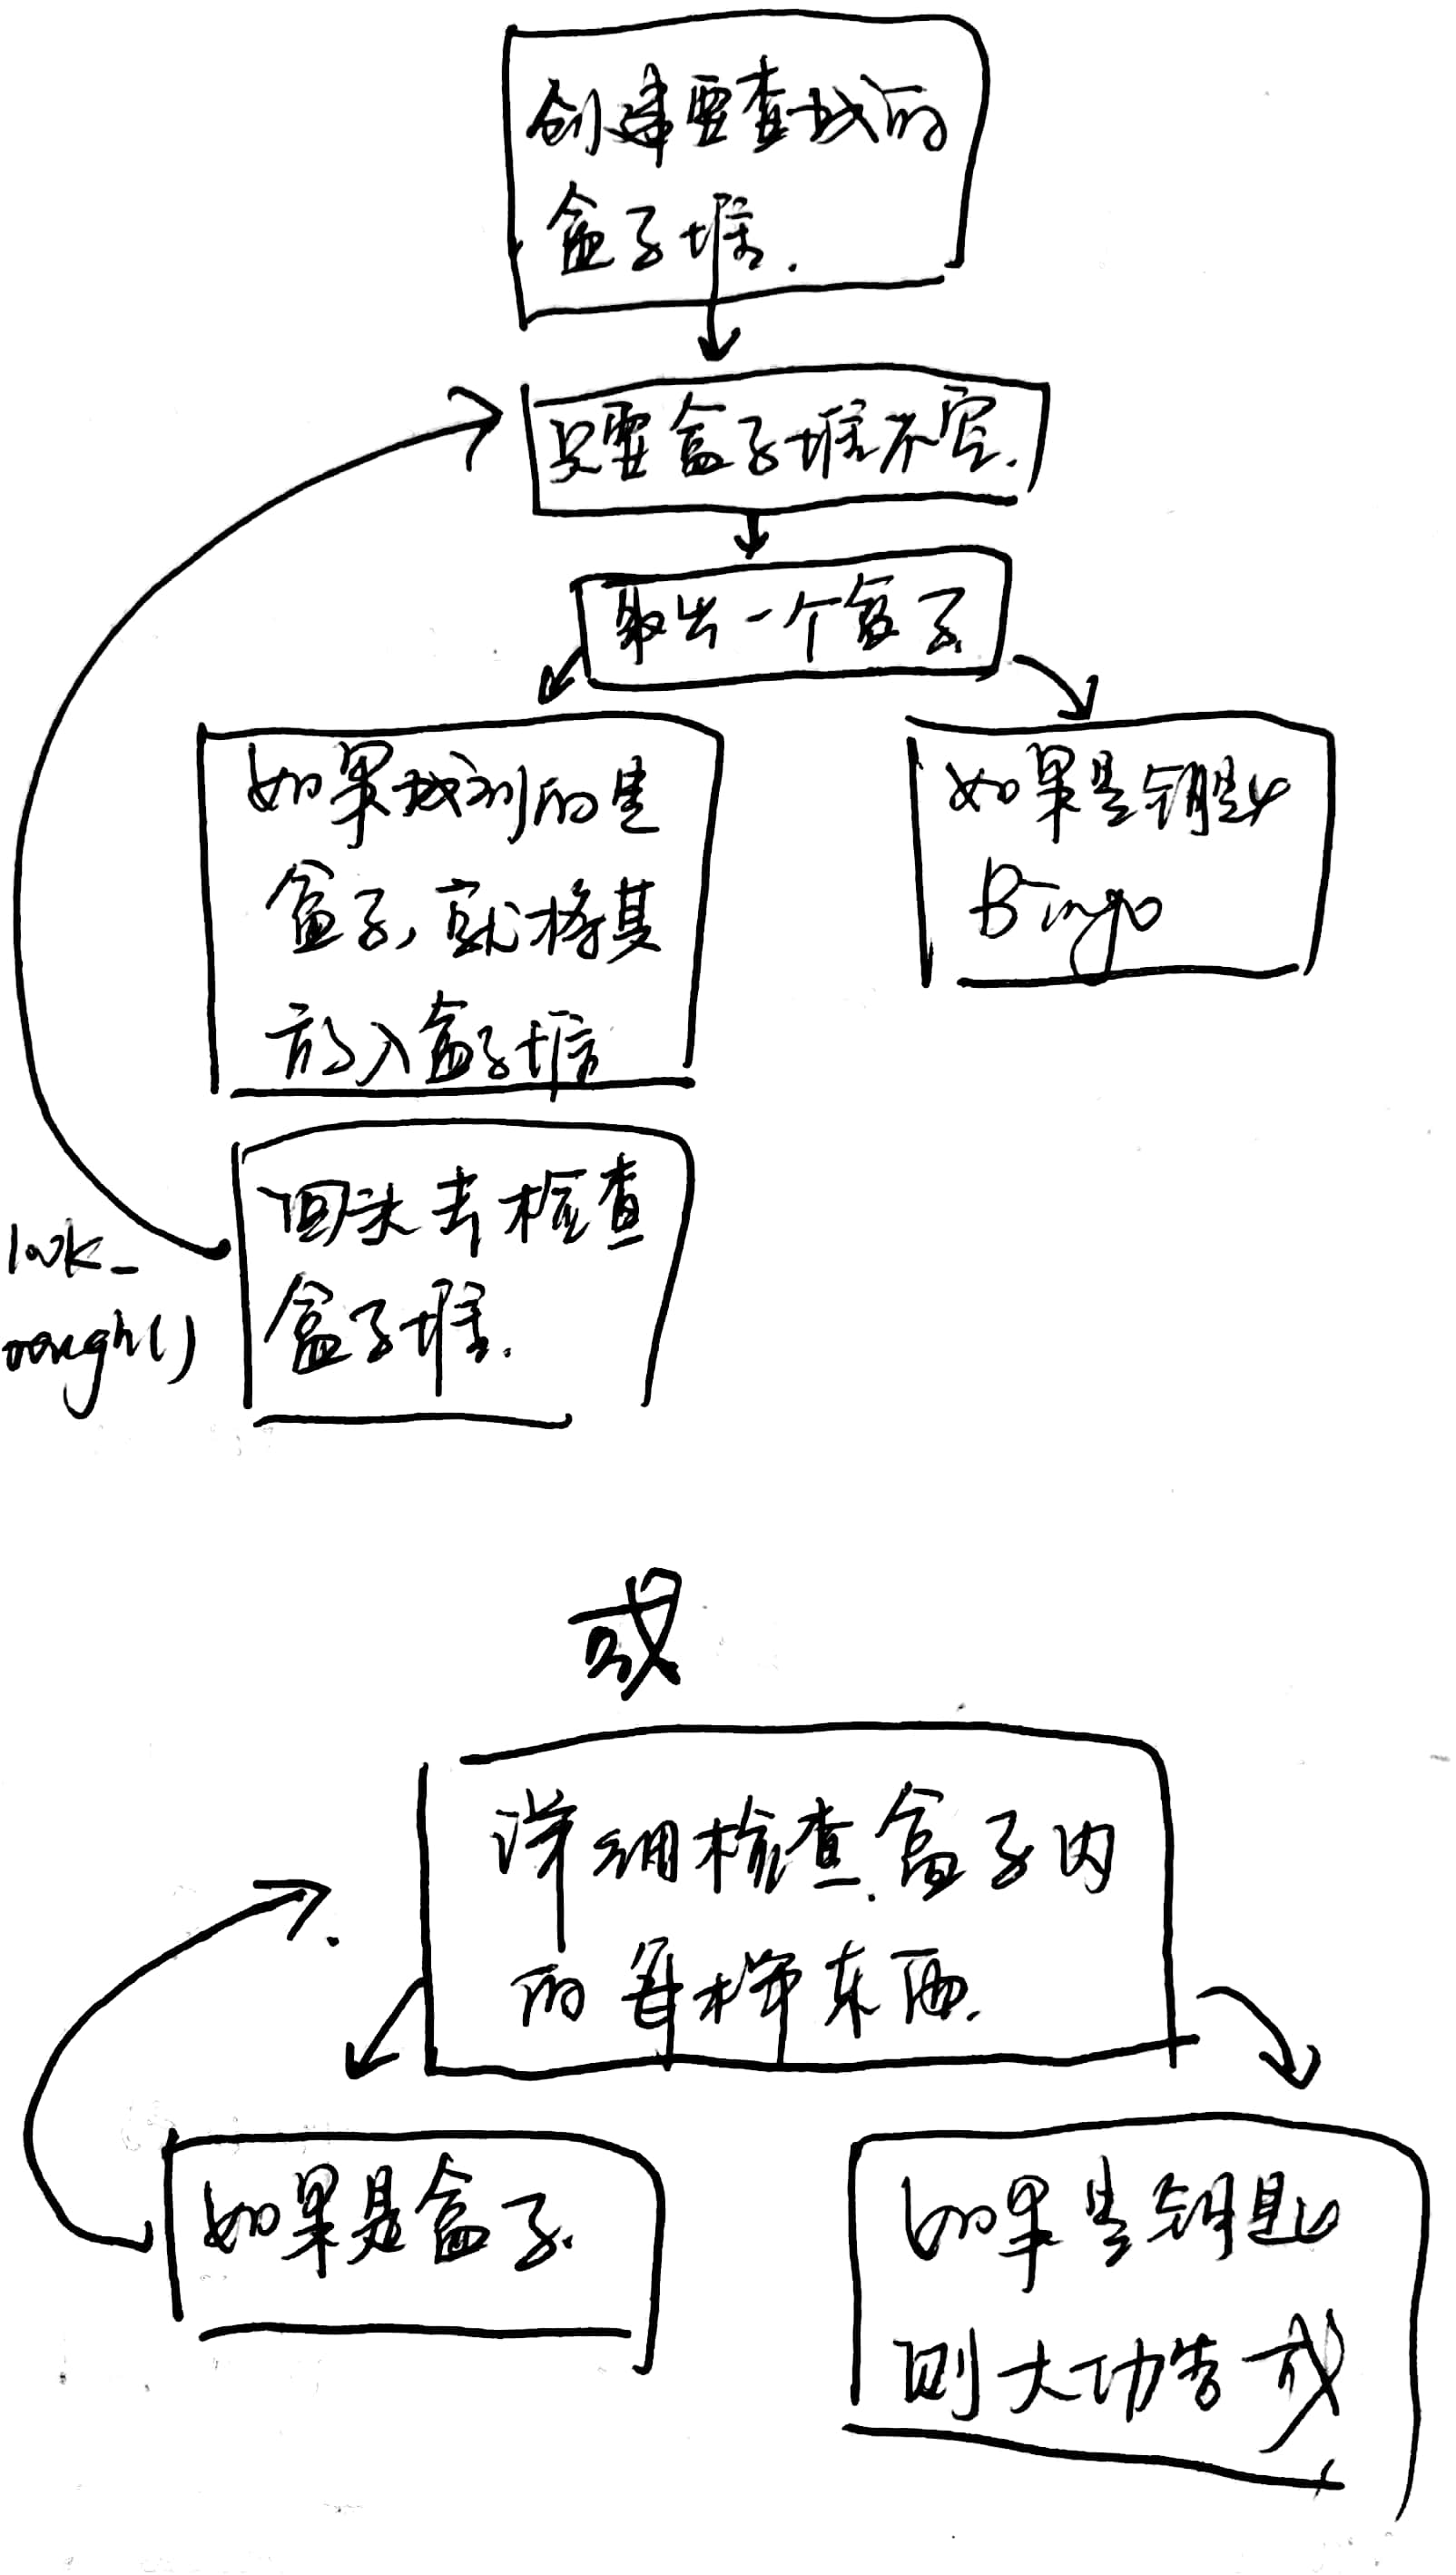 创建要查找的
盒子堆.
只要盒子堆不空.
取出一个盒子
如果找到的是
盒子,就将其
放入盒子堆
如果是钥匙
Bingo
回头去检查
盒子堆.
look_
或
详细检查盒子内
的每样东西.
如果是盒子.
如果是钥匙
则大功告成